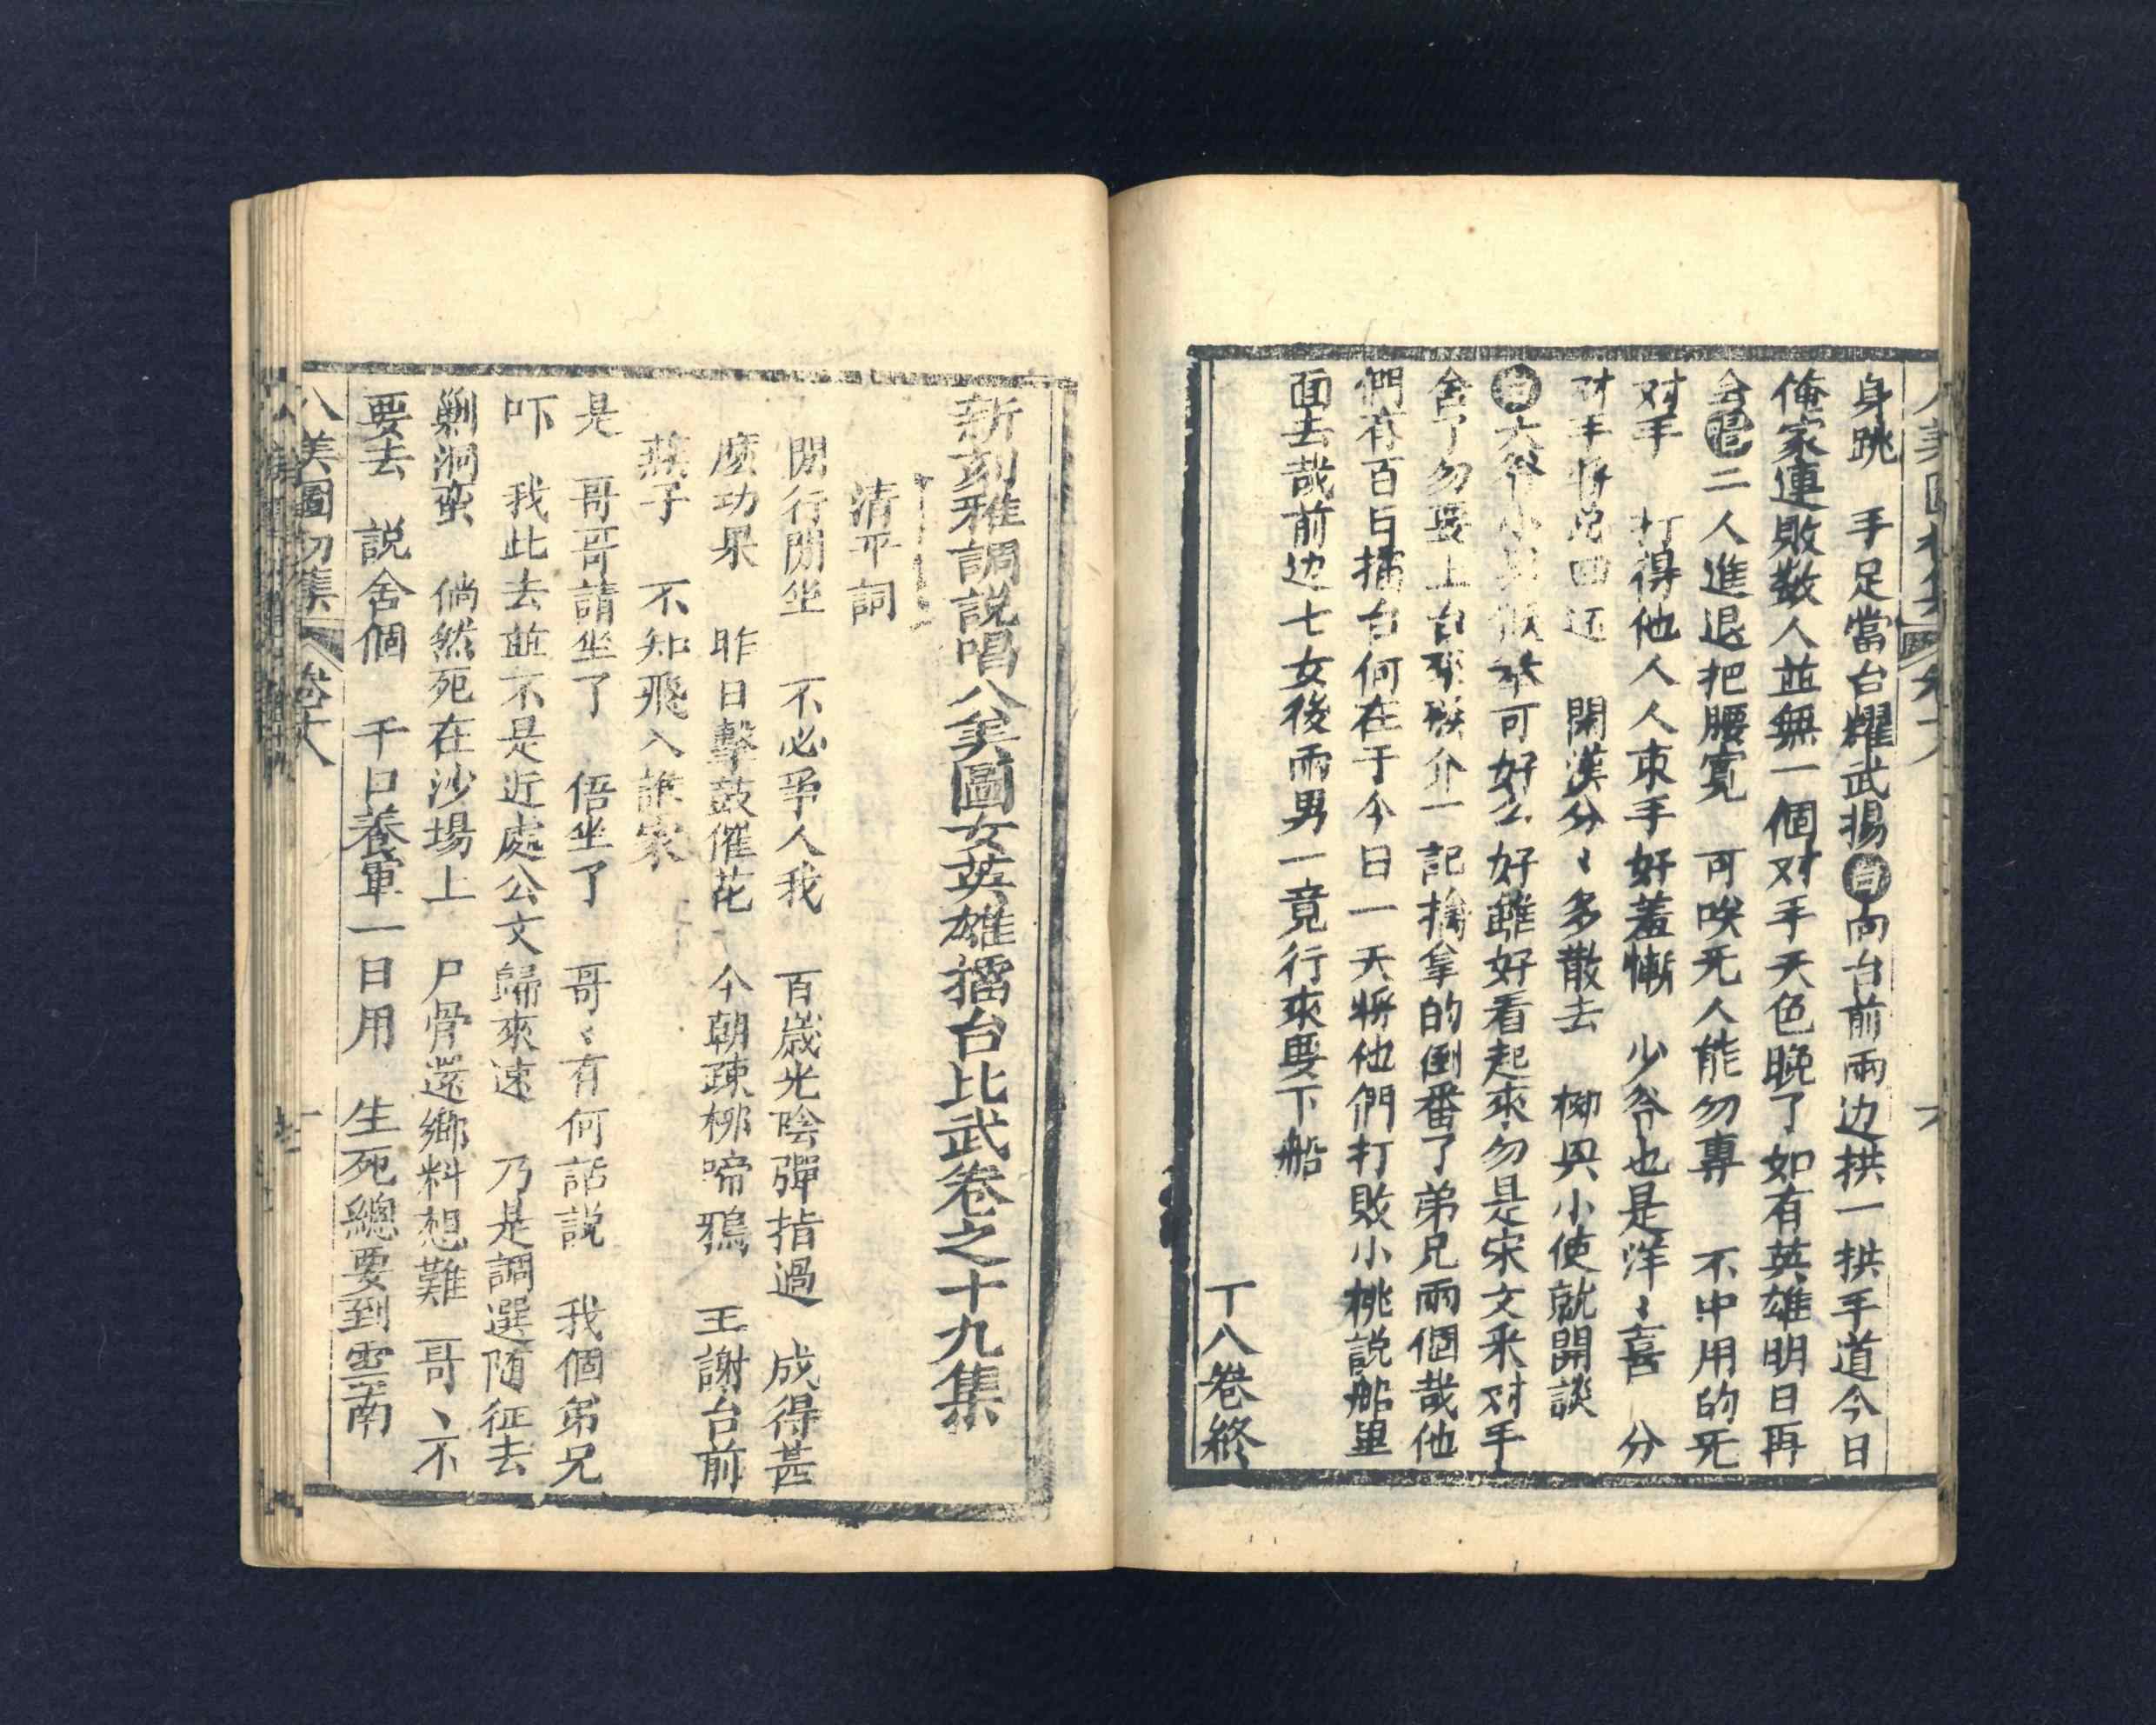 身跳　手足當台耀武揚白向台前兩边拱一拱手道今日
俺家連敗数人並無一個对手天色晚了如有英雄明日再
会唱二人進退把腰寛　可唉死人能勿專　不中用的死
对手　打得他人人束手好羞慚　少爷也是洋〻喜　分
对手將兑回还　閑漢分〻多散去　柳興小使就開談
白大爷小弟　可好么好雖好看起來勿是宋文采对手
舍了勿要上台來　介一記擒拿的倒番了弟兄兩個哉他
們有百日擂台何在于今日一天將他們打敗小桃説船里
面去哉前边七女後兩男一竟行來要下船
丁八卷終
新刻雅調説唱八美圖女英雄擂台比武卷之十九集
清平詞
閒行閒坐　不必爭人我　百歳光陰彈指過　成得甚
麼功果　昨日擊鼓催花　今朝疎柳啼鴉　王謝台前
燕子　不知飛入誰家
是　哥哥請坐了　俉坐了　哥〻有何話説　我個弟兄
吓　我此去並不是近處公文歸來速　乃是調選随征去
剿洞蛮　倘然死在沙場上　尸骨還鄉料想難　哥〻不
要去　説舍個　千日養軍一日用　生死總要到雲南
八美圖初集　卷十八